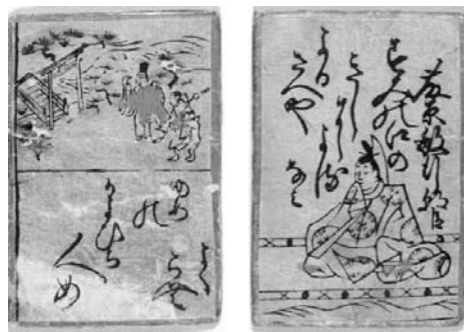 藤原敏行朝臣
すみの江の
きしに
よる
なみ
よる
さへや
ゆめ
の
かよひち
人め
よく
らむ